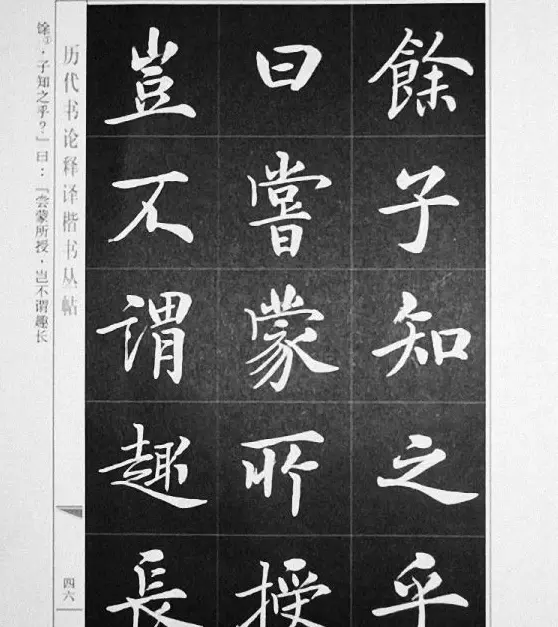 餘子知之乎
曰嘗蒙所授
豈不謂趣長
历代书论释译楷书丛帖
四六
馀①，子知之乎？」曰：「尝蒙所授，岂不谓趣长